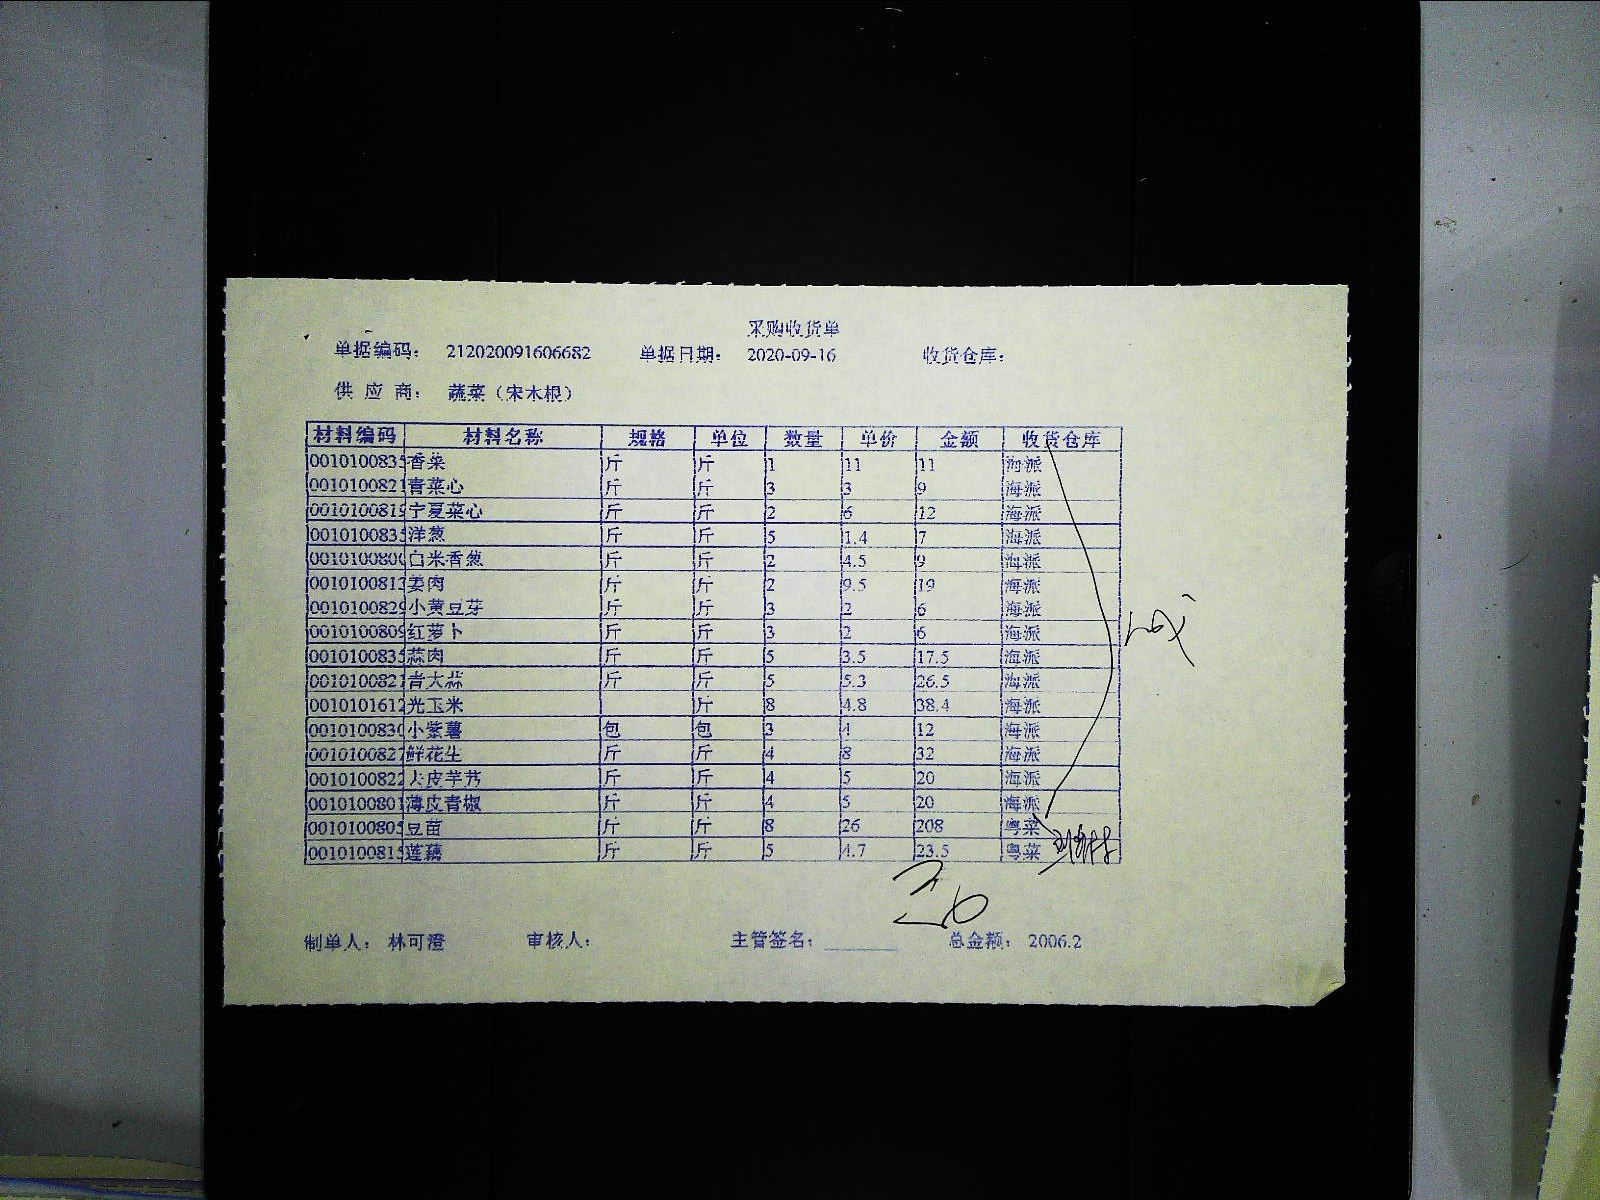 采购收货单
单据编码： 212020091606682 单据日期： 2020-09-16 收货仓库：
供 应 商： 蔬菜（宋木根）
材料编码 材料名称 规格 单位 数量 单价 金额 收货仓库
001010083 香菜 斤 斤 1 11 11 海派
001010082 青菜心 斤 斤 3 3 9 海派
001010081 宁夏菜心 斤 斤 2 6 12 海派
001010083 洋葱 斤 斤 5 1.4 7 海派
001010080 白米香葱 斤 斤 2 4.5 9 海派
001010081 姜肉 斤 斤 2 9.5 19 海派
001010082 小黄豆芽 斤 斤 3 2 6 海派
001010080 红萝卜 斤 斤 3 2 6 海派
001010083 蒜肉 斤 斤 5 3.5 17.5 海派
001010082 青大蒜 斤 斤 5 5.3 26.5 海派
001010161 光玉米 斤 8 4.8 38.4 海派
001010083 小紫薯 包 包 3 4 12 海派
001010082 鲜花生 斤 斤 4 8 32 海派
001010082 大皮芋艿 斤 斤 4 5 20 海派
001010080 薄皮青椒 斤 斤 4 5 20 海派
001010080 豆苗 斤 斤 8 26 208 粤菜
001010081 莲藕 斤 斤 5 4.7 23.5 粤菜
制单人： 林可澄 审核人： 主管签名： 总金额： 2006.2